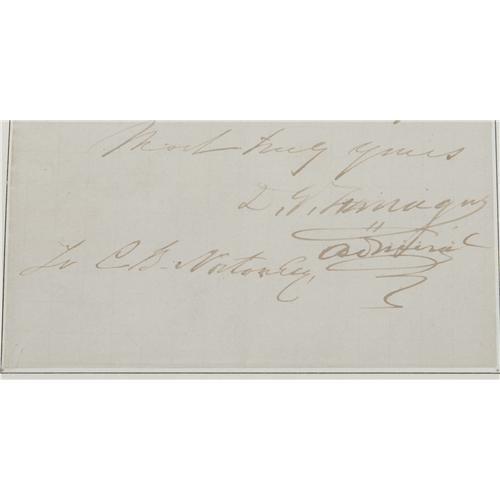 Most truly yours
D. G. Farragut
Admiral
To C B Norton Esq.